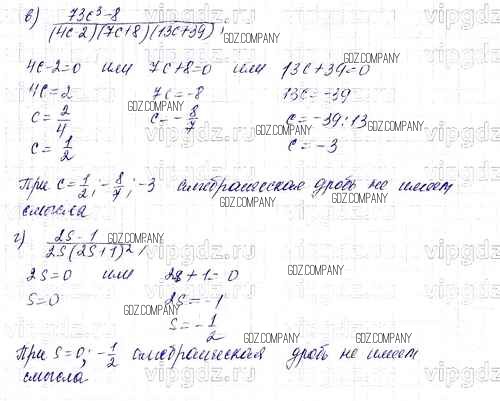 в) (73c³-8)/((4c-2)(7c+8)(13c+39));
4c-2=0 или 7c+8=0 или 13c+39=0
4c=2 7c=-8 13c=-39
c=2/4 c=-8/7 c=-39:13
c=1/2 c=-3
При c=1/2; -8/7; -3 алгебраическая дробь не имеет
смысла
г) (2s-1)/(2s(2s+1)²);
2s=0 или 2s+1=0
s=0 2s=-1
s=-1/2
При s=0; -1/2 алгебраическая дробь не имеет
смысла
GDZ.COMPANY
vipgdz.ru